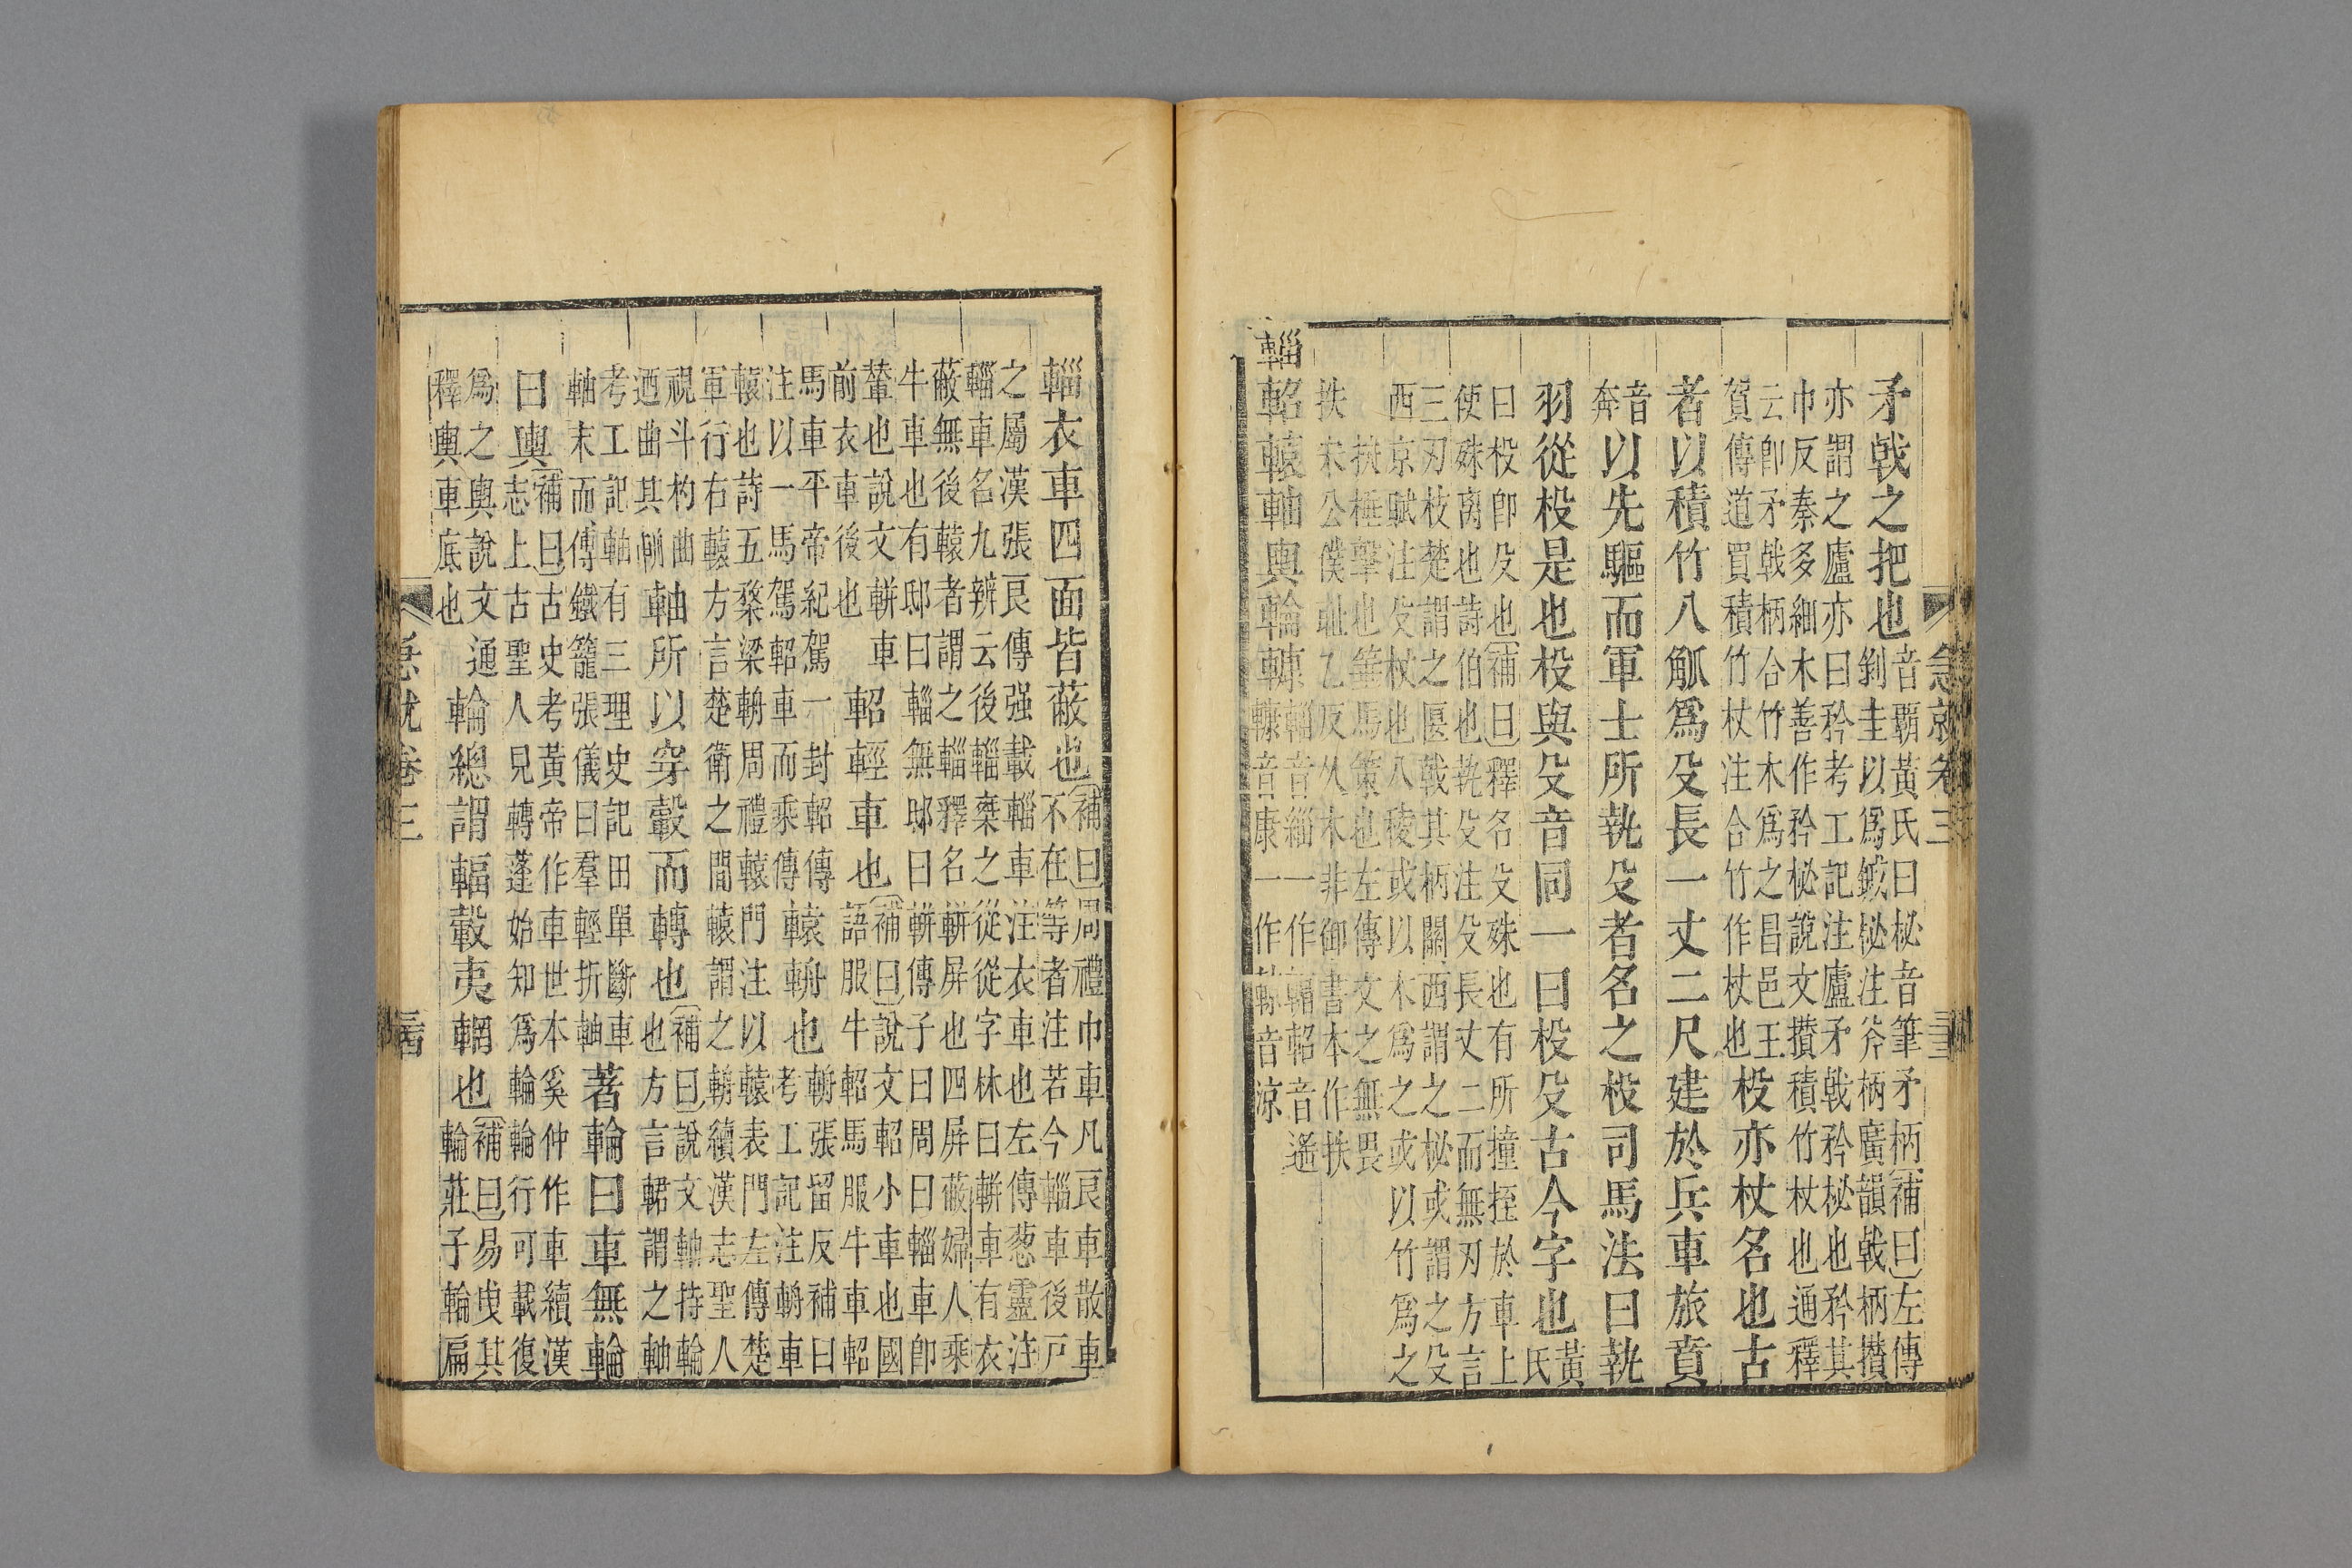 急就卷三 三三
矛戟之把也
音覇黄氏曰柲音筆矛柄補曰左傳
剝圭以爲鏚柲注斧柄廣韻戟柄攅
亦謂之廬亦曰矜考工記注廬矛戟矜柲也矜其
巾反秦多細木善作矜柲說文攅積竹杖也通釋
云卽矛戟柄合竹木爲之昌邑王
賀傳道買積竹杖注合竹作杖也
杸亦杖名也古
者以積竹八觚爲殳長一丈二尺建於兵車旅賁
音
奔
以先驅而軍士所執殳者名之杸司馬法曰執
羽從杸是也杸與殳音同一曰杸殳古今字也
黄
氏
曰杸卽殳也補曰釋名殳殊也有所撞挃於車上
使殊离也詩伯也執殳注殳長丈二而無刃方言
三刃枝楚謂之匽戟其柄關西謂之柲或謂之殳
西京賦注殳杖也八稜或以木爲之或以竹爲之
抶捶擊也箠馬策也左傳文之無畏
抶宋公僕耻乙反从木非御書本作抶
輜軺轅軸輿輪
輜音緇一作輺軺音遥
音康一作 音涼
輜衣車四面皆蔽也
補曰周禮巾車凡良車散車
不在等者注若今輜車後戶
之屬漢張良傳强載輜車注衣車也左傳葱靈注
輜車名九辨云後輜椉之從從字林曰軿車有衣
蔽無後轅者謂之輜釋名軿屏也四屏蔽婦人乘
牛車也有邸曰輜無邸曰軿傳子曰周曰輜車卽
輦也說文軿車
前衣車後也
軺輕車也
補曰說文軺小車也國
語服牛軺馬服牛車軺
馬車平帝紀駕一封軺傳
注以一馬駕軺車而乘傳
轅輈也
輈張留反補曰
考工記注輈車
轅也詩五楘梁輈周禮轅門注以轅表門左傳楚
軍行右轅方言楚衛之間轅謂之輈續漢志聖人
視斗杓曲
迺曲其輈
軸所以穿轂而轉也
補曰說文軸持輪
也方言䡝謂之軸
考工記軸有三理史記田單斷車
軸末而傅鐵籠張儀曰羣輕折軸
著輪曰車無輪
曰輿
補曰古史考黄帝作車世本奚仲作車續漢
志上古聖人見轉蓬始知爲輪輪行可載復
爲之輿說文通
釋輿車底也
輪總謂輻轂夷輞也
補曰易曳其
輪莊子輪扁
急就卷三 三四